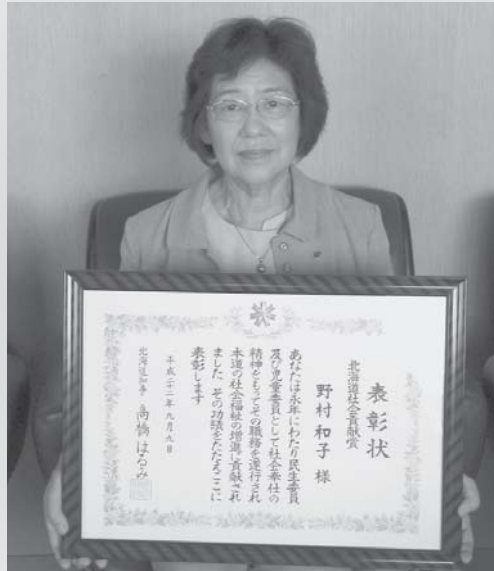 表彰状
北海道社会貢献賞
野村和子 様
あなたは永年にわたり民生委員
及び児童委員として社会奉仕の
精神をもってその職務を遂行され
本道の社会福祉の増進に貢献され
ました その功績をたたえここに
表彰します
平成二十二年九月九日
北海道知事 高橋はるみ